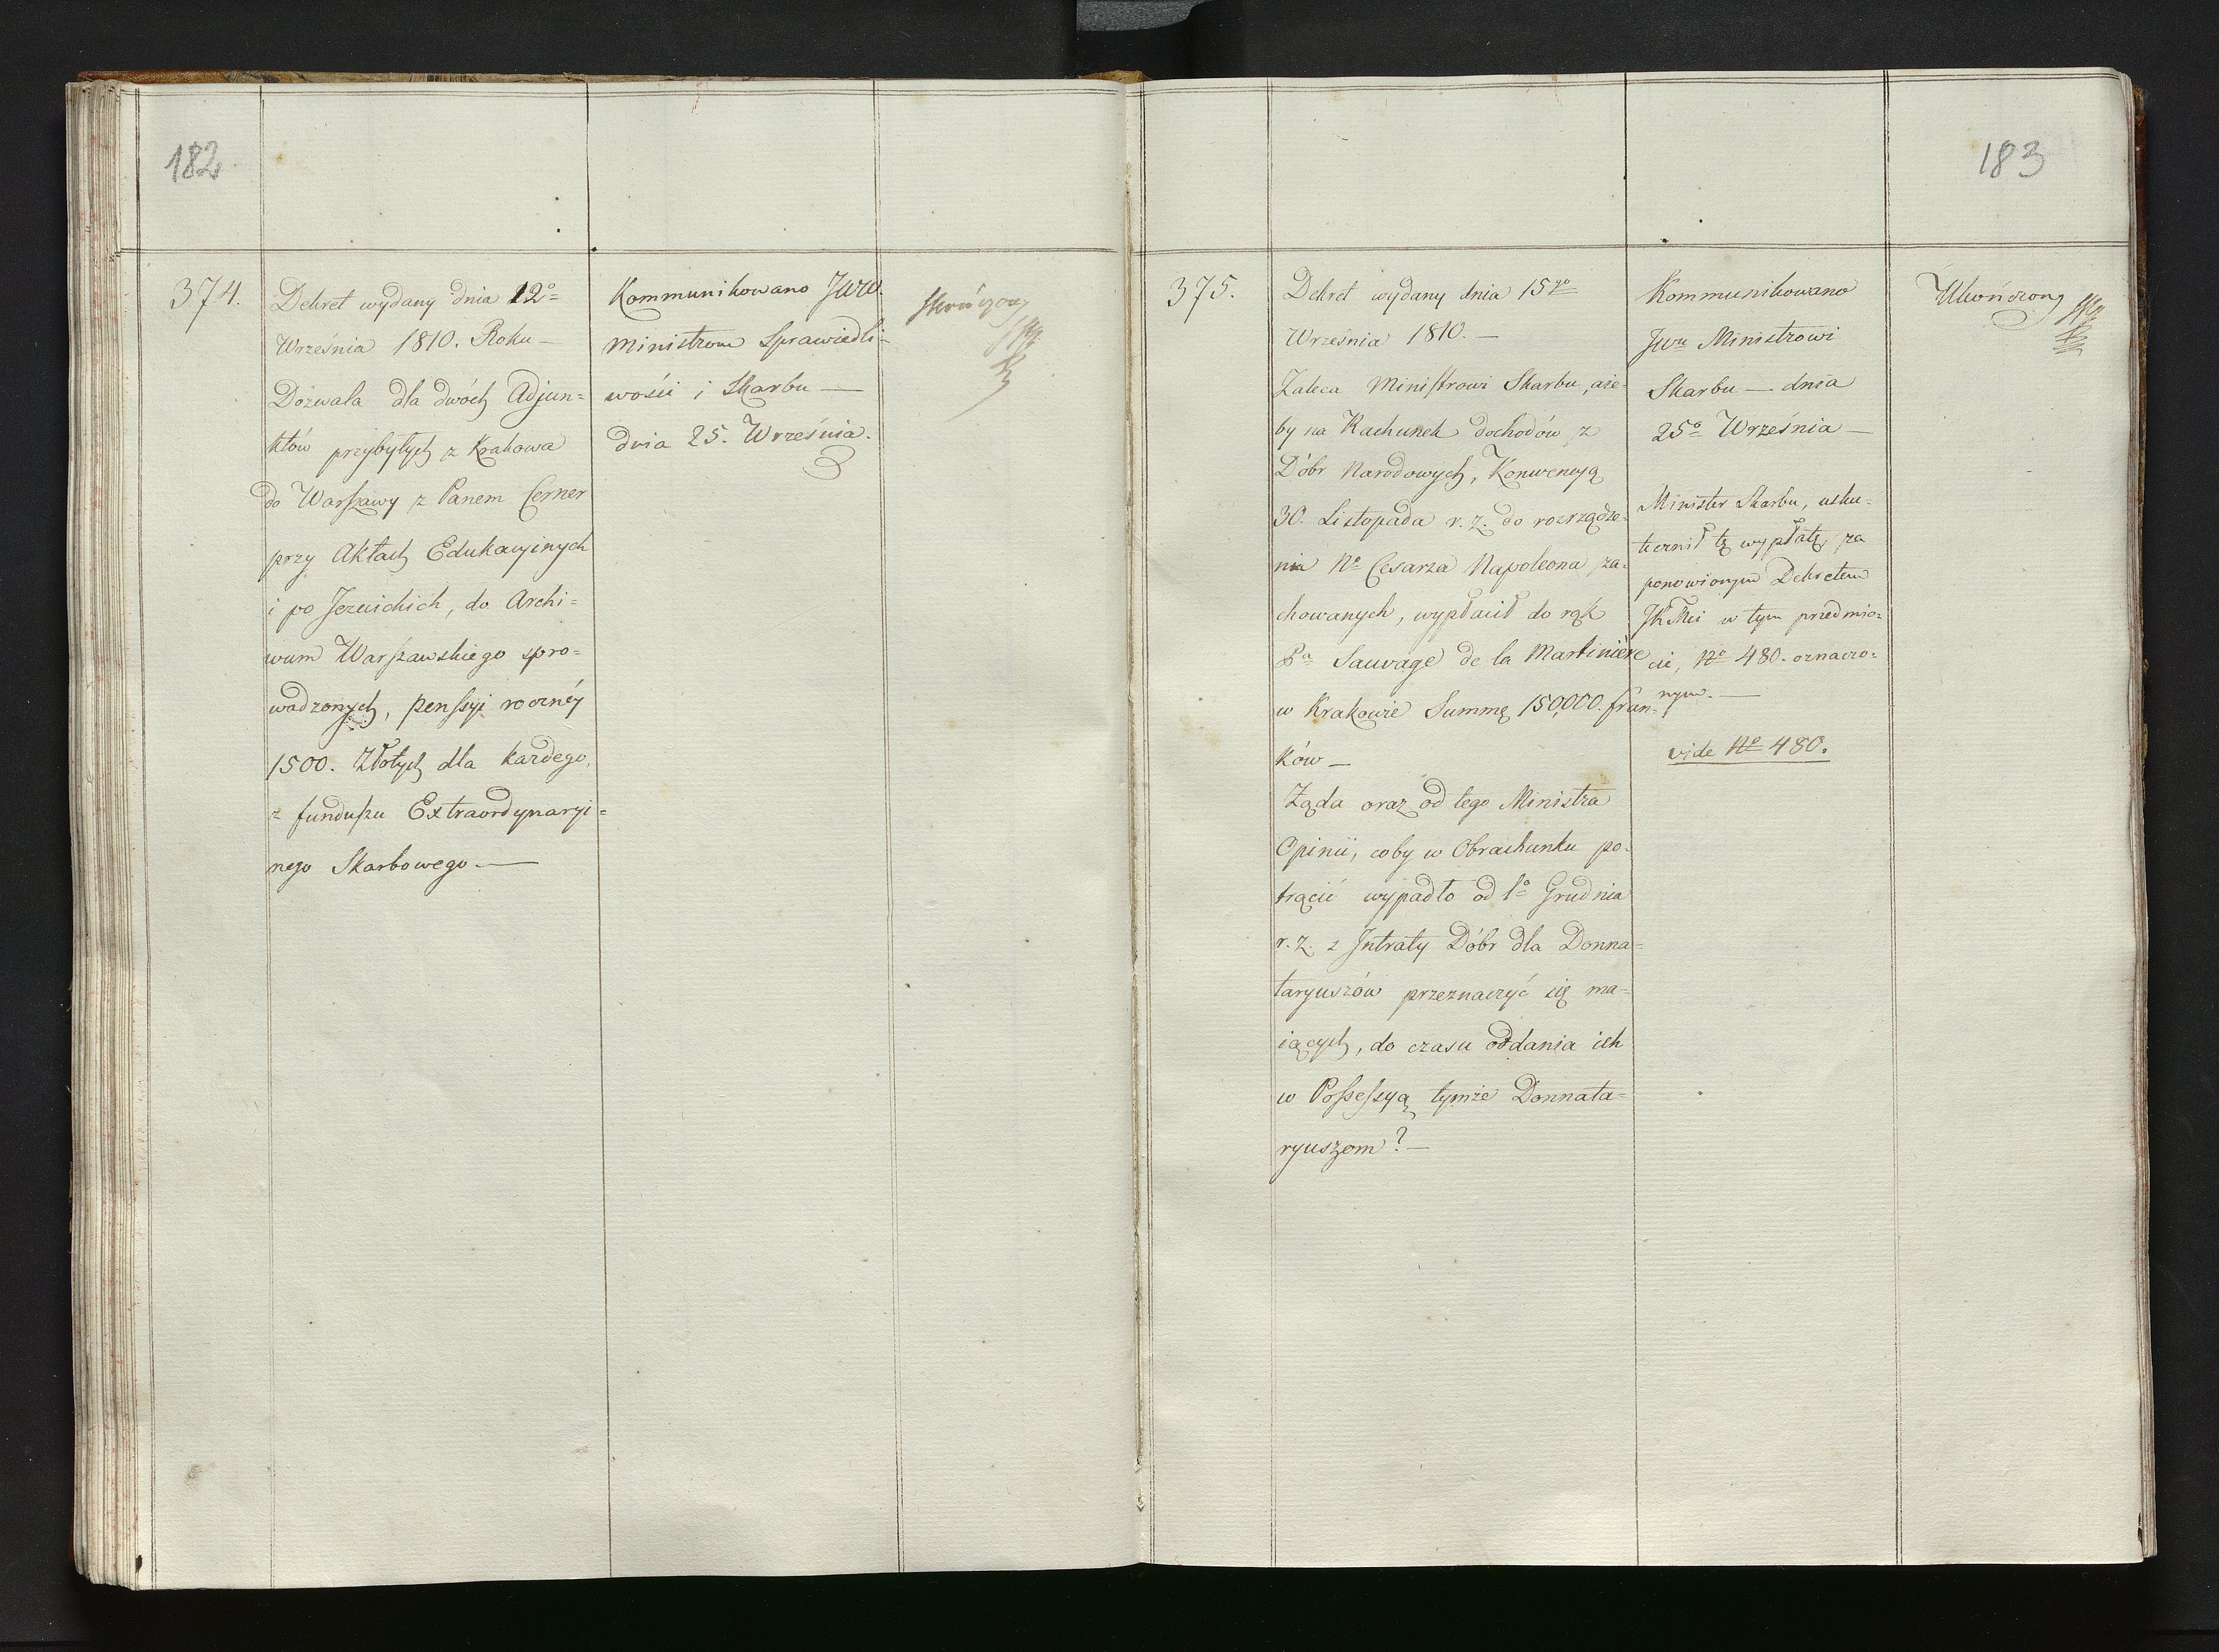 182
374.
Dekret wydany dnia 12º
Września 1810. Roku —
Dozwala dla dwóch Adjun=
któw przybyłych z Krakowa
do Warszawy z Panem Cerner
przy Aktach Edukacyjnych
i po Jezuickich, do Archi=
wum Warszawskiego spro=
wadzonych, penssyi roczney
1500. Złotych dla każdego,
z funduszu Extraordynaryi=
nego Skarbowego —
Kommunikowano JWW.
Ministrom Sprawiedli=
wości i Skarbu —
dnia 25. Września.
Skończony
183
375.
Dekret wydany dnia 15go
Września 1810. —
Zaleca Ministrowi Skarbu, aże=
by na Rachunek dochodów z
Dóbr Narodowych, Konwencyą
30. Listopada r. z. do rozrządze=
nia Nº Cesarza Napoleona za=
chowanych, wypłacił do rąk
Pa Sauvage de la Martinière
w Krakowie Summę 150,000. fran=
ków —
Żąda oraz od tego Ministra
Opinii, coby w Obrachunku po=
trącić wypadło od 1º Grudnia
r. z. z Intraty Dóbr dla Donna=
taryuszów przeznaczyć się ma=
iących, do czasu oddania ich
w Possessyą tymże Donnata=
ryuszom? —
Kommunikowano
JWu Ministrowi
Skarbu — dnia
25º Września —
Minister Skarbu, usku=
tecznił tę wypłatę, za
ponowionym Dekretem
JKMci w tym przedmio=
cie, Nº 480. oznaczo=
nym. —
vide Nº 480.
Ukończony